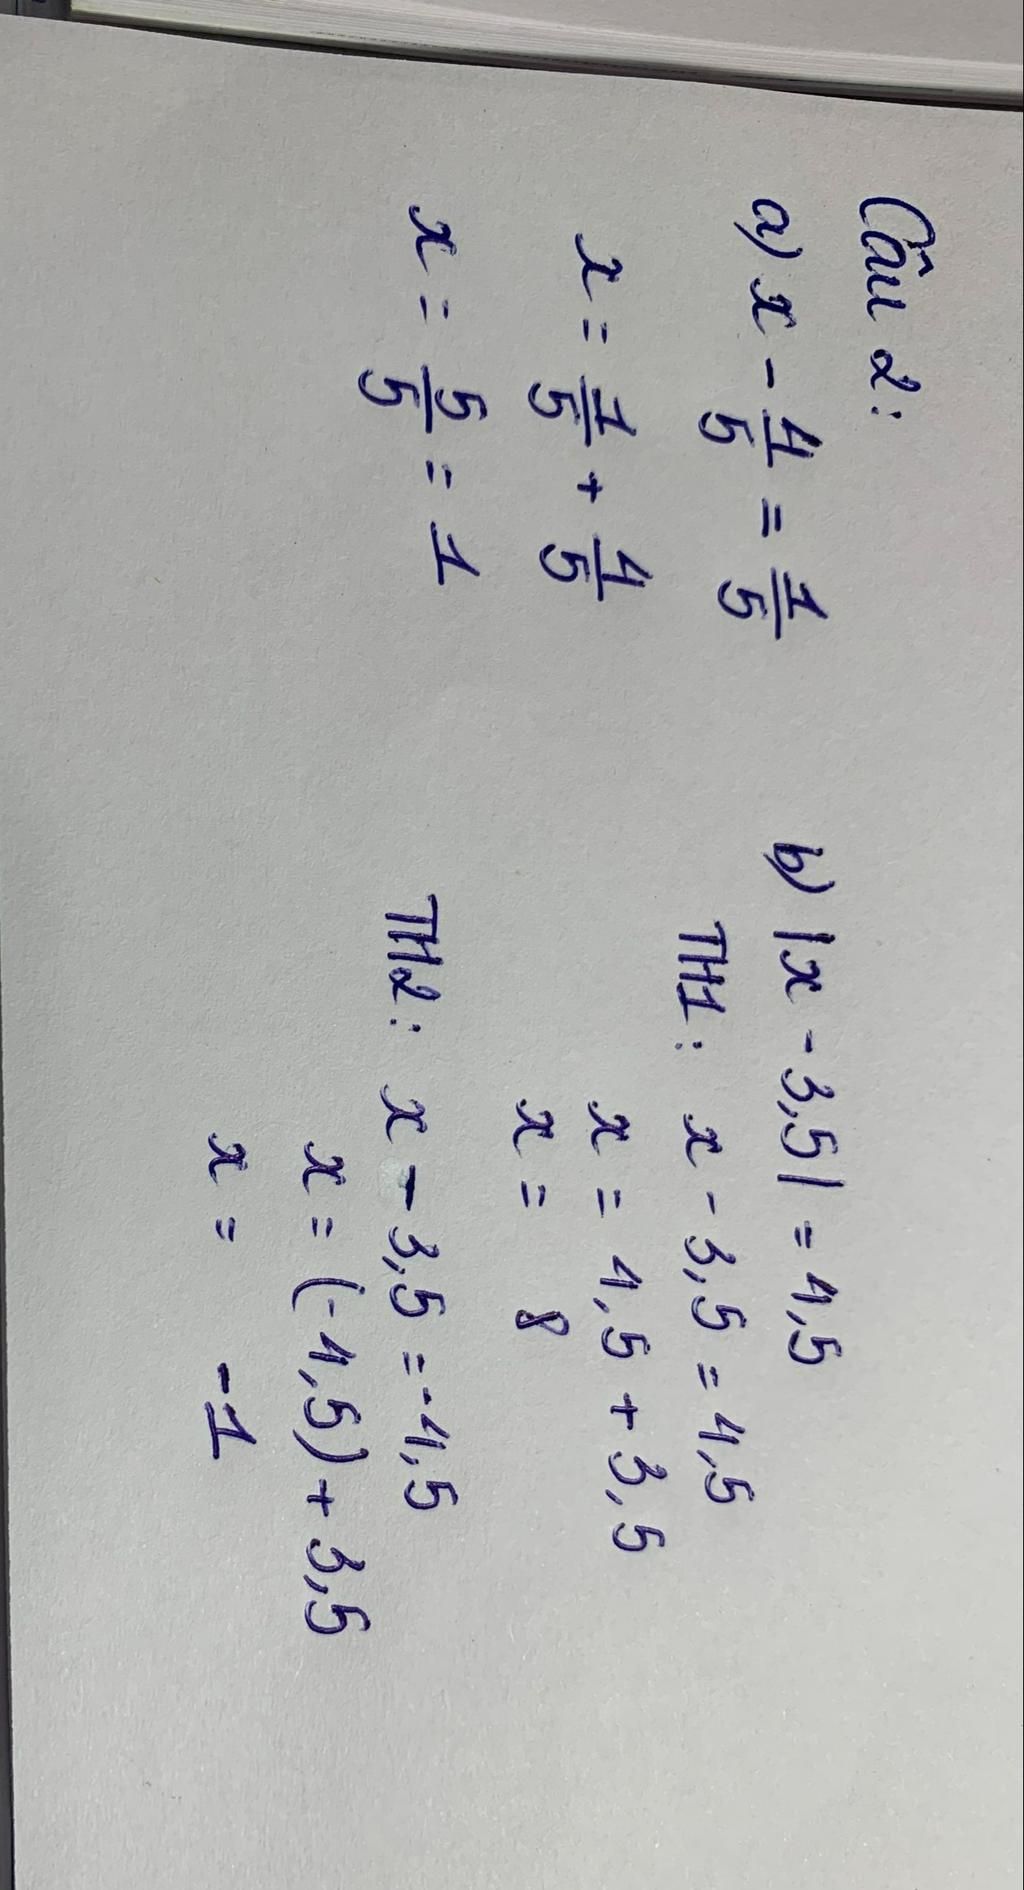 Câu 2:
a) x - 4/5 = 1/5
x = 1/5 + 4/5
x = 5/5 = 1
b) |x - 3,5| = 4,5
TH1: x - 3,5 = 4,5
x = 4,5 + 3,5
x = 8
TH2: x - 3,5 = -4,5
x = (-4,5) + 3,5
x = -1